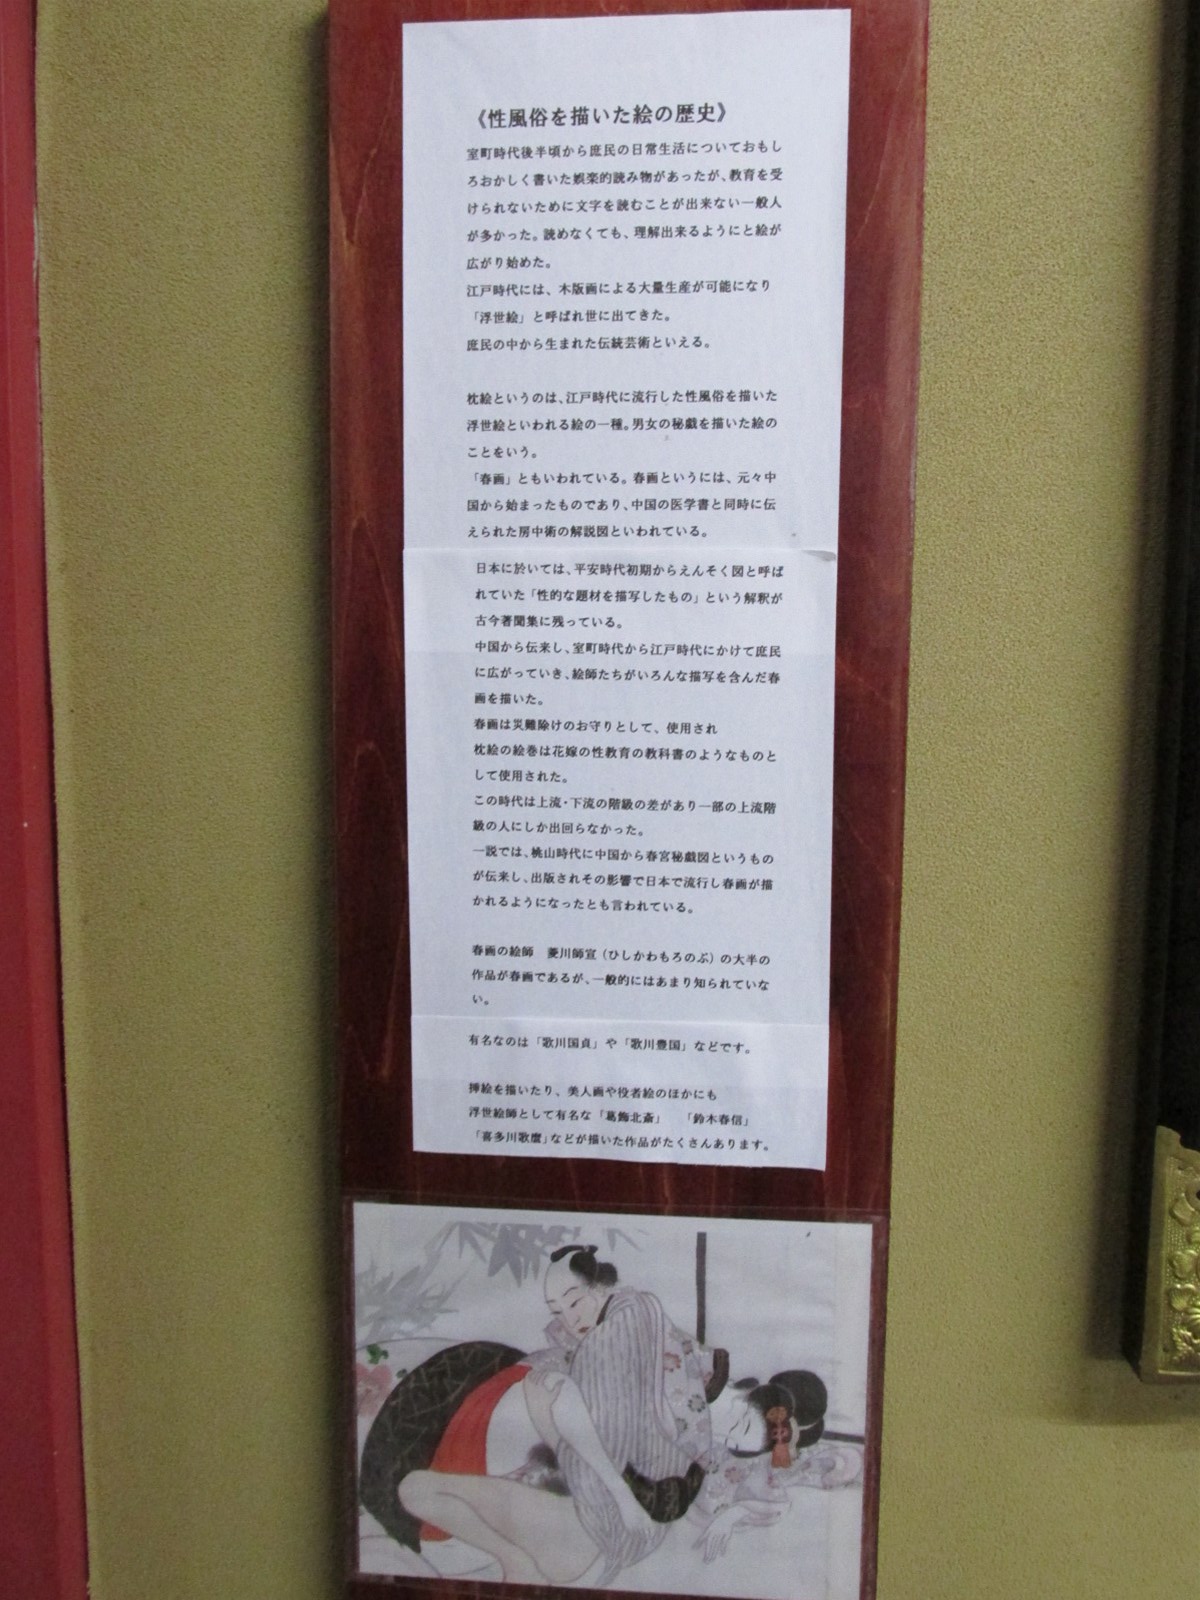 《性風俗を描いた絵の歴史》
室町時代後半頃から庶民の日常生活についておもし
ろおかしく書いた娯楽的読み物があったが、教育を受
けられないために文字を読むことが出来ない一般人
が多かった。読めなくても、理解出来るようにと絵が
広がり始めた。
江戸時代には、木版画による大量生産が可能になり
「浮世絵」と呼ばれ世に出てきた。
庶民の中から生まれた伝統芸術といえる。
枕絵というのは、江戸時代に流行した性風俗を描いた
浮世絵といわれる絵の一種。男女の秘戯を描いた絵の
ことをいう。
「春画」ともいわれている。春画というには、元々中
国から始まったものであり、中国の医学書と同時に伝
えられた房中術の解説図といわれている。
日本に於いては、平安時代初期からえんそく図と呼ば
れていた「性的な題材を描写したもの」という解釈が
古今著聞集に残っている。
中国から伝来し、室町時代から江戸時代にかけて庶民
に広がっていき、絵師たちがいろんな描写を含んだ春
画を描いた。
春画は災難除けのお守りとして、使用され
枕絵の絵巻は花嫁の性教育の教科書のようなものと
して使用された。
この時代は上流・下流の階級の差があり一部の上流階
級の人にしか出回らなかった。
一説では、桃山時代に中国から春宮秘戯図というもの
が伝来し、出版されその影響で日本で流行し春画が描
かれるようになったとも言われている。
春画の絵師　菱川師宣（ひしかわもろのぶ）の大半の
作品が春画であるが、一般的にはあまり知られていな
い。
有名なのは「歌川国貞」や「歌川豊国」などです。
挿絵を描いたり、美人画や役者絵のほかにも
浮世絵師として有名な「葛飾北斎」　「鈴木春信」
「喜多川歌麿」などが描いた作品がたくさんあります。